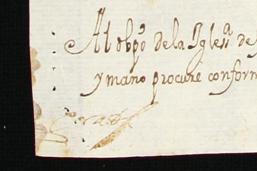 Al obpõ de la Igles.ª de
y mano procure conform